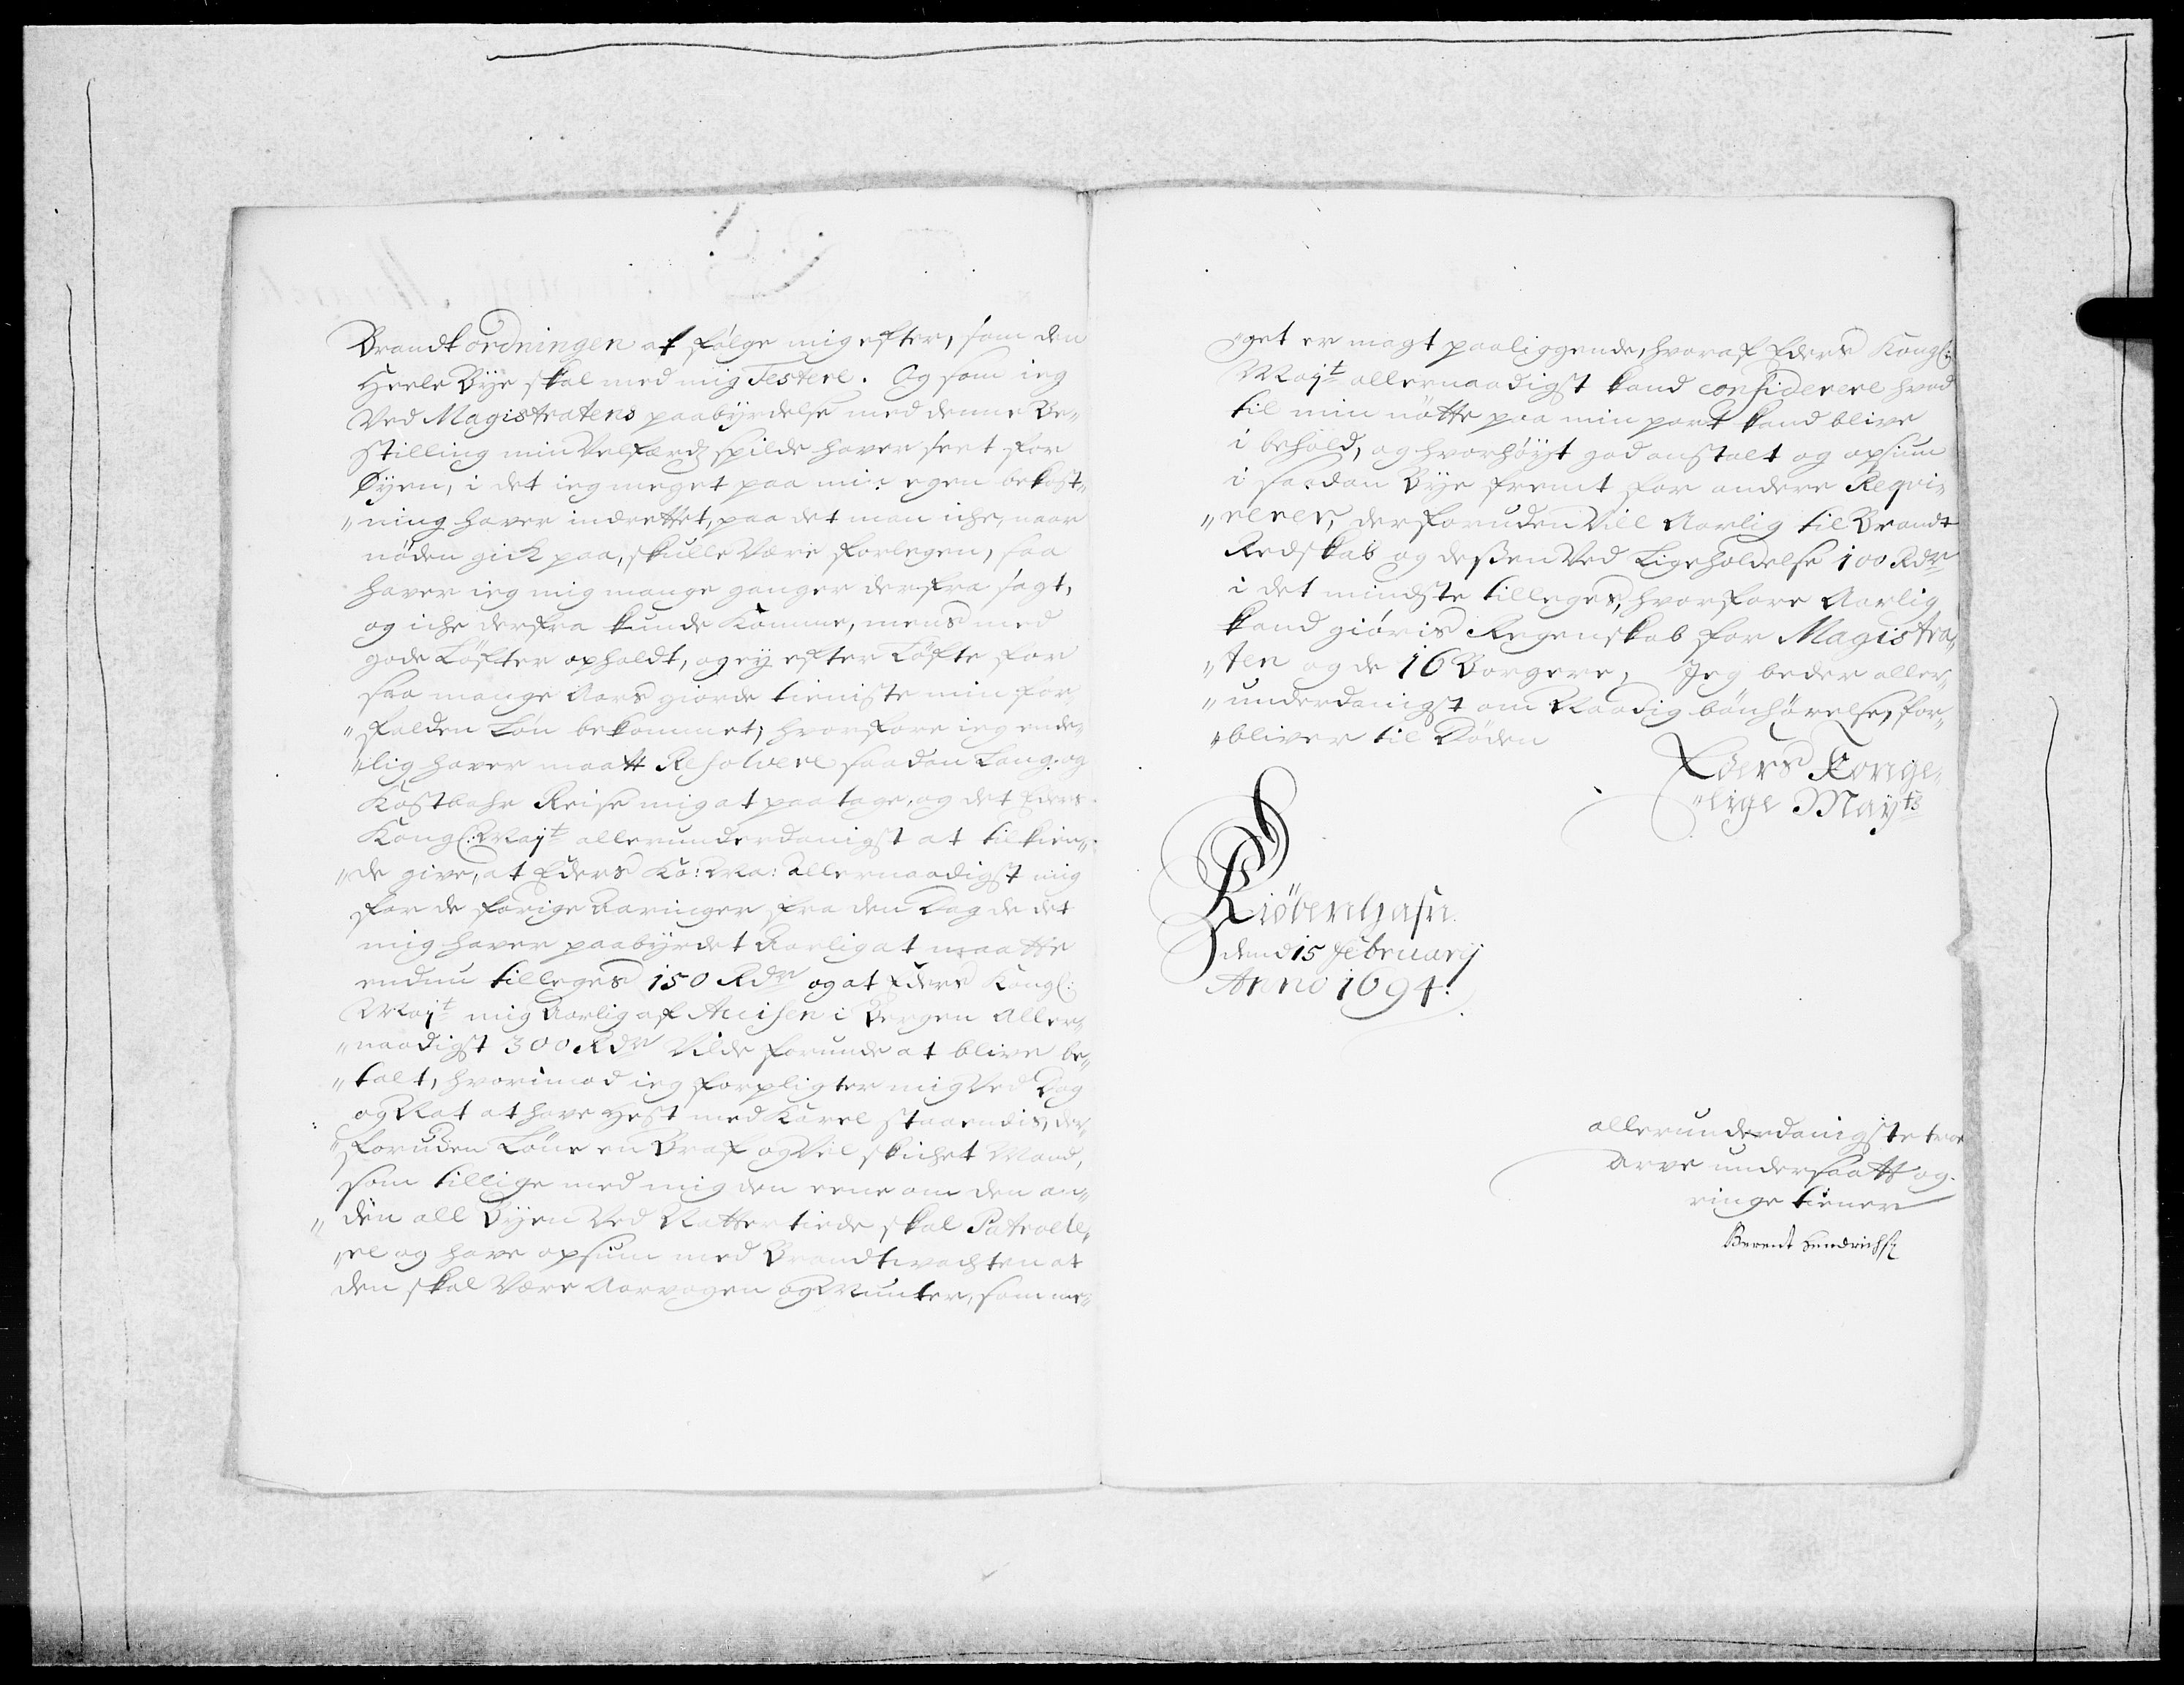 Brandt ordningen at følge mig efter, som den
Heele Bÿe skal med mig Testere. Og som ieg
Ved Magistratens paabÿrdelse med denne Be¬
stilling min Velfærdz spilde haver seet for
Øyen, i det ieg meget paa min egen bekost¬
"ning haver indrettet, paa det man iche, naar
nøden gick paa, skulle Være forlegen, saa
haver ieg mig mange ganger derfra sagt,
og iche derfra kunde Komme, mens med
gode Løfter opholdt, og ey efter Løfte for
saa mange Aars giorde tieniste min for¬
"falden Løn bekommet; hvorfore ieg ende¬
"lig haver maatt Resolvere saadan Lang og
Kostbahr Reise mig at paatage, og det Eders
Kongl: Mayt allerunderdanigst at tilkien¬
"de give, at Eders Ko: Ma: allernaadigst mig
for de forige Aaringer fra den Dag de det
mig haver paabÿrdet Aarlig at maatte
endnu tilleges 150 Rdr og at Eders Kongl:
Mayt mig Aarlig af Accisen i Bergen Aller¬
"naadigst 300 Rdr Vilde forunde at blive be¬
"talt, hvorimod ieg forpligter mig Ved Dag
og Nat at have Hest med Karel staaendis, der¬
"foruden Løne en Braf og Vel skichet Mand,
som tillige med mig den eene om den an¬
"den all Bÿen Ved Natter tiede skal Patrolle¬
"re og have opsiun med Brandtvachten at
den skal Være Aarvagen og Munter, som me¬
"get er magt paaliggende, hvoraf Eders Kongl:
Mayt allernaadigst kand considerere hvad
til min nötte paa min part kand blive
i behold, og hvorhøyt god anstalt og opsiun
i saadan Bÿe fremt for andere Reqvi¬
"rerer, derforuden Vill Aarlig til Brandt
Redskab og deßen Ved Ligeholdelse 100 Rdr
i det mindste tilleges, hvorfore Aarlig
kand giøris Regenskab for Magistra¬
"ten og de 16 Borgere, Jeg beder aller¬
"underdanigst om Naadig bönhørelse, for¬
"bliver til Døden
Eders Konge¬
"lige Mayts
Kiöbenhafn
dend 15 Februarij
Anno 1694.
allerunderdanigste troe
Arve undersaatt og
ringe tiener
Berent Hendrichsen